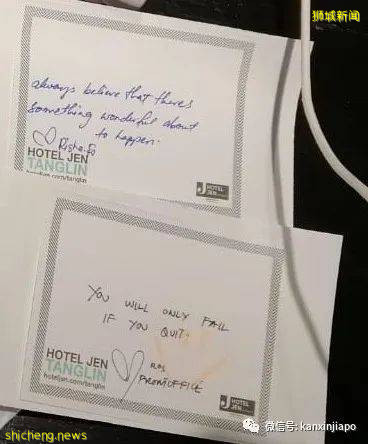 狮城新闻
always believe that theres
something wonderful about
to happen.
HOTEL JEN
TANGLIN
hoteljen.com/tanglin
HOTEL JEN
YOU WILL ONLY FAIL
IF YOU QUIT.
HOTEL JEN
TANGLIN
hoteljen.com/tanglin
FRONT OFFICE
HOTEL JEN
微信号: kanxinjiapo
shicheng.news